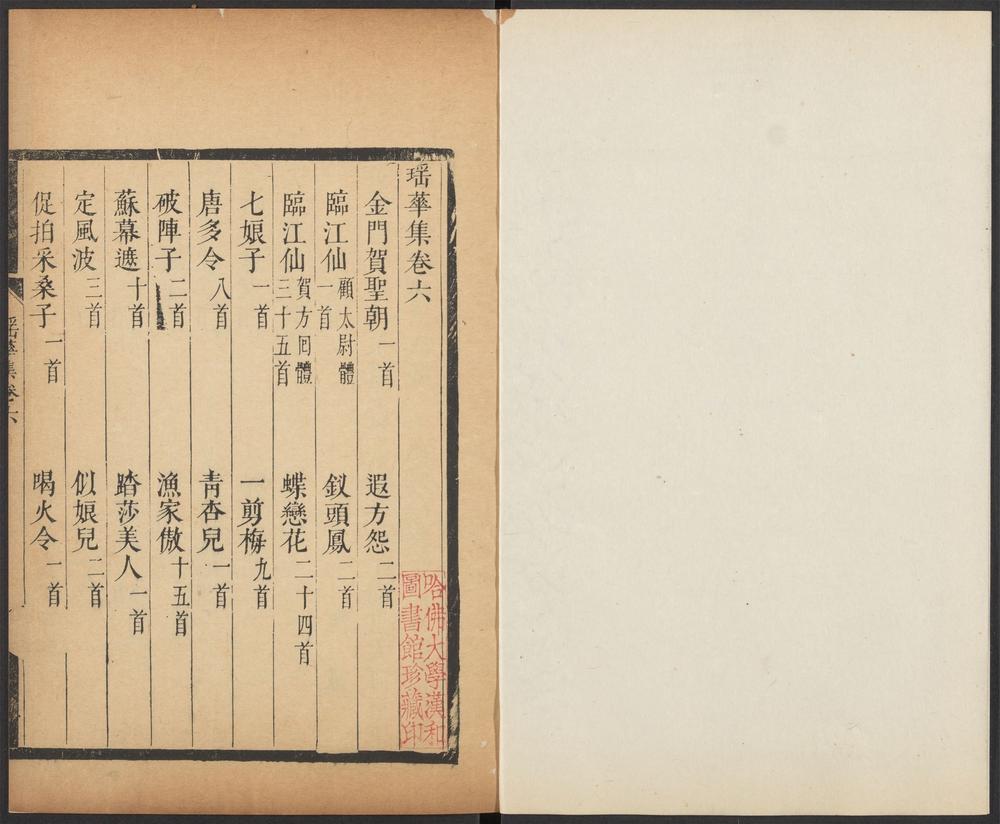 瑶華集卷六
金門賀聖朝一首　遐方怨二首
臨江仙顧太尉體一首　釵頭鳳二首
臨江仙賀方囘體三十五首　蝶戀花二十四首
七娘子一首　一剪梅九首
唐多令八首　青杏兒一首
破陣子二首　漁家傲十五首
蘇幕遮十首　踏莎美人一首
定風波三首　似娘兒二首
促拍采桑子一首　喝火令一首
瑶華集卷六
哈佛大學漢和
圖書館珍藏印